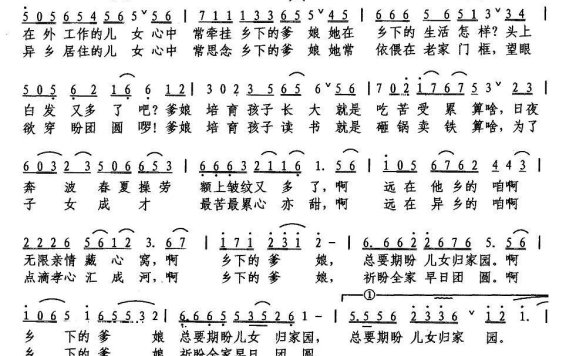 5 0 5 6 5 4 5 6 5 6 5 | 7 1 1 1 3 3 6 5 5 4 5 | 5 6 5 4 3. 2 3
在外工作的儿女心中 常牵挂乡下的爹娘她在 乡下的生活怎样?头上
异乡居住的儿女心中 常思念乡下的爹娘她常 依偎在老家门框,望眼
5 0 5 6 2 1 6 6 1 2 | 5 6 1 6 5 3 2 1 2 | 7 0 2 1 7 6 7 5 2 3
白发又多了吧?爹娘 培育孩子长大就是 吃苦受累算啥,日夜
欲穿盼团圆啰!爹娘 培育孩子读书就是 砸锅卖铁算啥,为了
6 0 3 2 3 5 0 6 6 5 3 | 6 6 6 3 2 1 1 6 1. 5 6 | 1 0 5 6 7 6 7 5 6
奔波春夏操劳 额上皱纹又多了,啊 远在他乡的咱啊
子女成才 最苦最累心亦甜,啊 远在异乡的咱啊
2 2 2 6 5 6 1 2 3. 6 7 | 1 7 1 2 3 1 2 - | 6. 6 6 2 2 6 6 7 5. 5 6
无限亲情藏心窝,啊 乡下的爹娘, 总要期盼儿女归家园,啊
点滴孝心汇成河,啊 乡下的爹娘, 祈盼全家早日团圆。啊
①
1 0 6 5 1 6 5 5 3 2 | 6. 6 6 5 5 3 5 2 6 1 - | 5. 5 5 6 2 3 3 6 1 2 1.
乡下的爹娘 总要期盼儿女归家园, 总要期盼儿女归家园。
乡下的爹娘 祈盼全家早日团圆